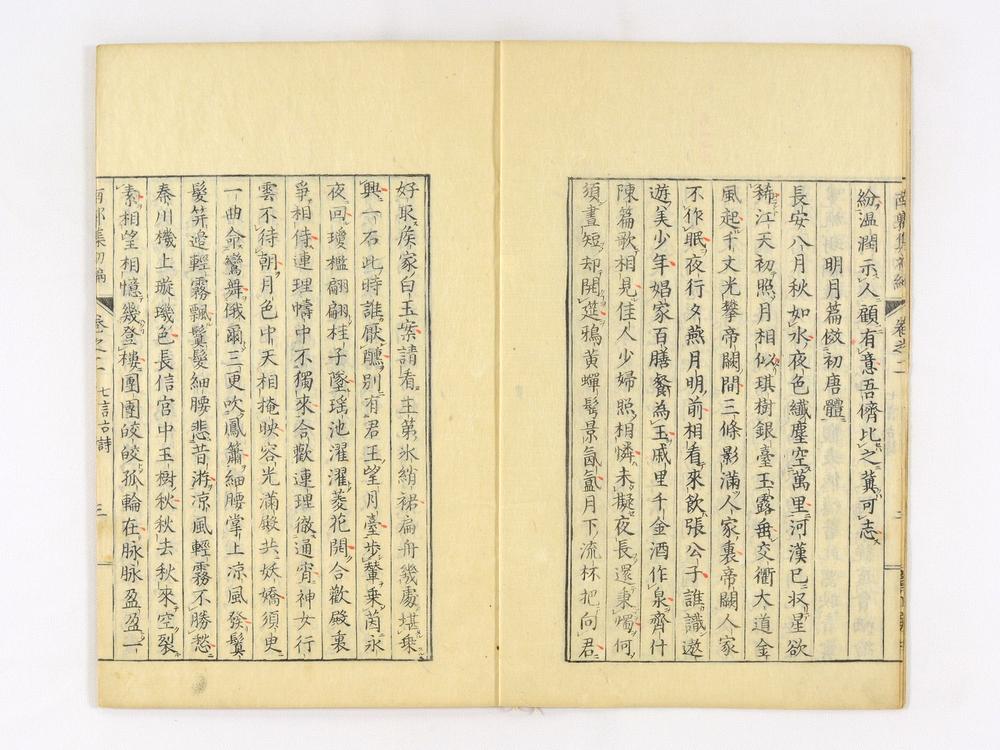 南郭集初編 卷之二
紛温潤示人顧有意吾儕比之冀可志
明月篇倣初唐體
長安八月秋如水夜色纖塵空萬里河漢已収星欲
稀江天初照月相似琪樹銀臺玉露垂交衢大道金
風起千丈光攀帝闕間三條影滿人家裏帝闕人家
不作眠夜行夕燕月明前相看來飲張公子誰識遨
遊美少年娼家百膳餐為玉戚里千金酒作泉齊什
陳篇歌相見佳人少婦照相憐未擬夜長還秉燭何
須晝短却開筵鴉黄蟬鬂景氤氳月下流杯把向君
好取矦家白玉案請看主第氷綃裙扁舟幾處堪乗
興一石此時誰厭醺別有君王望月臺步輦乗茵永
夜回璦檻翩翩桂子墜瑶池濯濯菱花開合歡殿裏
爭相侍連理幬中不獨來合歡連理徹通宵神女行
雲不待朝月色中天相掩映容光滿殿共妖嬌須臾
一曲侖鸞舞俄爾三更吹鳳簫細腰掌上凉風發鬒
髪笄邉輕霧飄鬒髪細腰悲昔游凉風輕霧不勝愁
秦川機上璇璣色長信宮中玉樹秋秋去秋來空裂
素相望相憶幾登樓團團皎皎孤輪在脉脉盈盈一
南郭集初編 卷之二 七言古詩 三